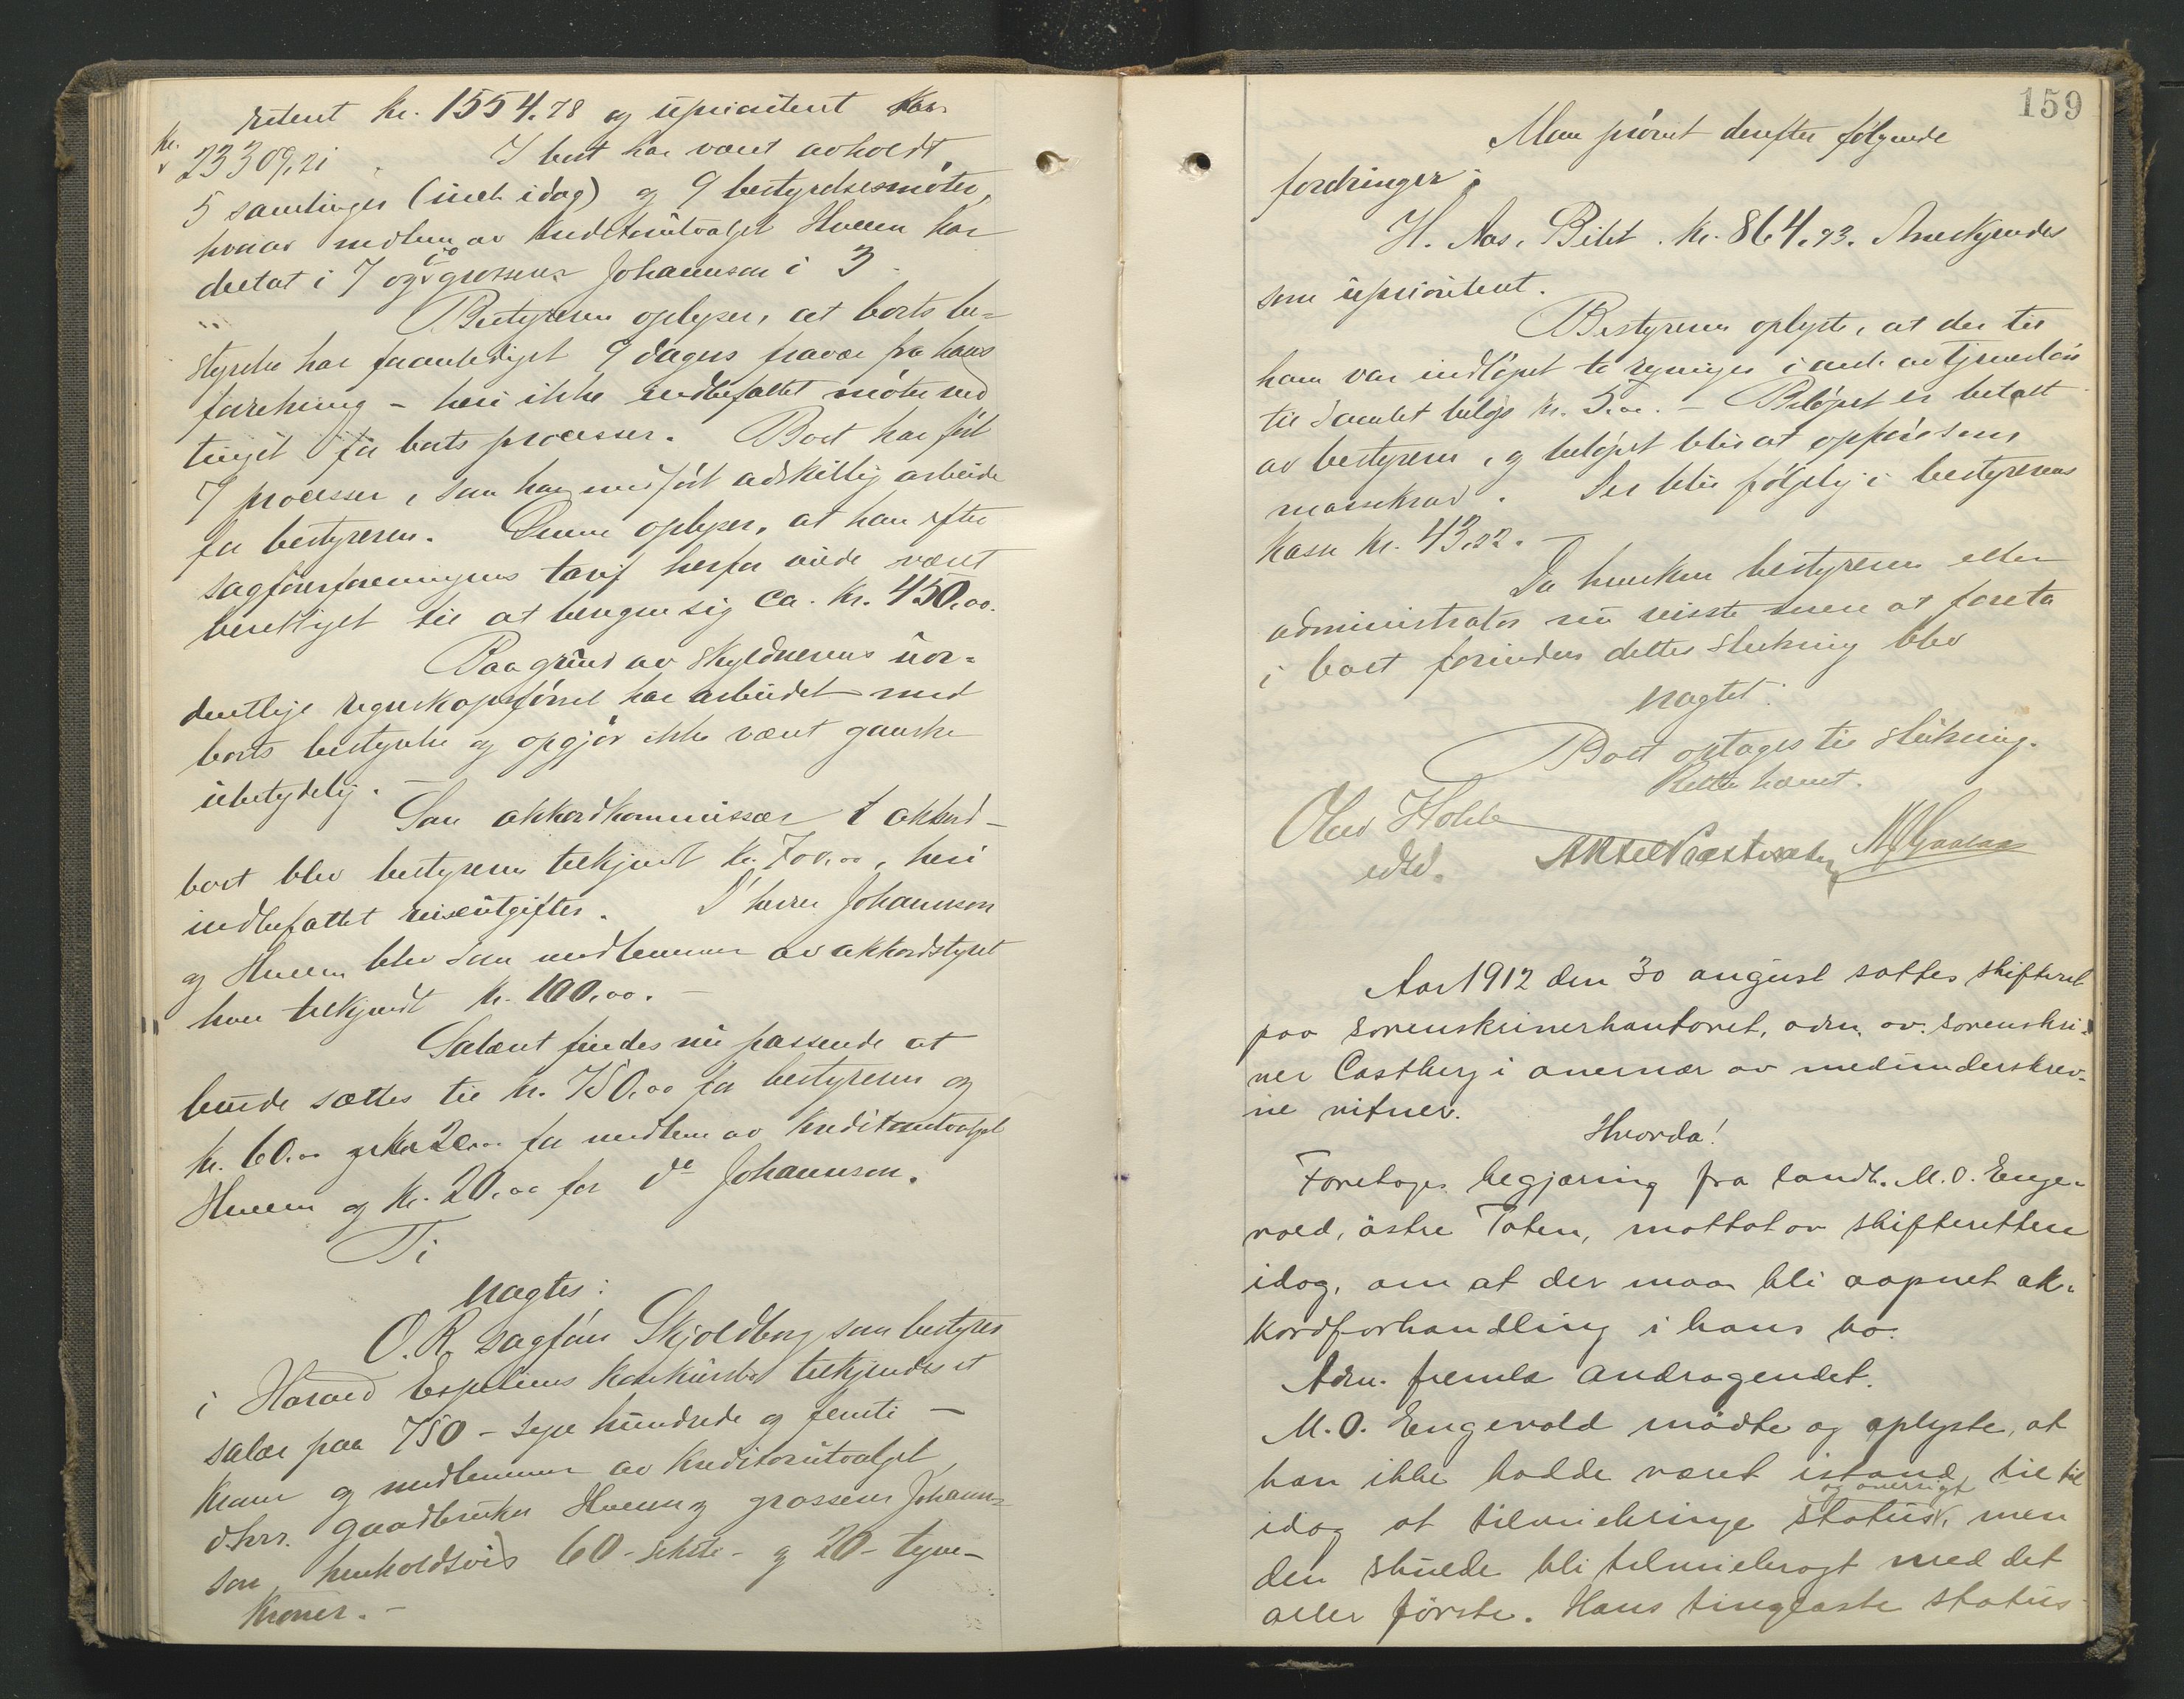 ritert kr. 1554.78 og uprioritert
kr. 23309,21. I boet har været avholdt
5 samlinger (incl. idag) og 9 bestyrelsesmøter,
hvorav medlem av kreditorutvalget Hveem har
deltat i 7 og grosserer Johannson i 3.
Bestyreren oplyser, at boets be-
styrelse har foranlediget 9 dagers fravær fra hans
forretning - heri ikke indbefattet møter ved
tinget for boets processer. Boet har ført
7 processer, som har medført adskillig arbeide
for bestyreren. Denne oplyser, at han efter
sagførerforeningens tarif herfor vilde været
berettiget til at beregne sig ca. kr. 450.00.
Paa grund av skyldnerens uor-
dentlige regnskapsførsel har arbeidet med
boets bestyrelse og opgjør ikke været ganske
ubetydelig.
Som akkordkommissær i akkord-
boet blev bestyreren tilkjendt kr. 700.00, heri
indbefattet reiseutgifter. D'herrer Johannson
og Hveem blev som medlemmer av akkordstyret
hver tilkjendt kr. 100.00. -
Salæret findes nu passende at
burde sættes til kr. 750.00 for bestyreren og
kr. 60.00 for medlem av kreditorutvalget
Hveem og kr. 20.00 for do Johannson.
Ti
vragtes:
O.R. sagfører Skjoldborg som bestyrer
i Harald Espeliens konkursbo tilkjendes et
salær paa 750 - syv hundrede og femti -
kroner og medlemmer av kreditorutvalget
d.hrr. gaardbruker Hveem og grosserer Johann-
son henholdsvis 60 - seksti - og 20 - tyve -
kroner. -
159
Man prøvet derefter følgende
fordringer:
H. Aas, Bilit. kr. 864.93. Anerkjendes
som uprioritert.
Bestyreren oplyste, at der til
ham var indløpet to regninger i anl. av
til samlet beløp kr. 5.00. - Beløpet er betalt
av bestyreren, og beløpet blir at opføre som
massekrav. Der blir følgelig i bestyrerens
kasse kr. 43.22. -
Da hverken bestyreren eller
administrator nu visste mere at foreta
i boet forinden dettes slutning blev
vragtet:
Boet optages til slutning.
Retten hævet.
Olav Holde
edsv.
Aar 1912 den 30 august sattes skifteret
paa sorenskriverkontoret, adm. av sorenskri-
ver Castberg i overvær av medunderskrev-
ne vitner.
Hvorda!
Foretoges begjæring fra landh. M. O. Enge-
vold, østre Toten, mottat av skifteretten
idag, om at der maa bli aapnet ak-
kordforhandling i hans bo.
Adm. fremla andragendet.
M. O. Engevold mødte og oplyste, at
han ikke hadde været istand til til
idag at tilveiebringe status og oversigt, men
den skulde bli tilveiebragt med det
aller første. Hans tinglæste status